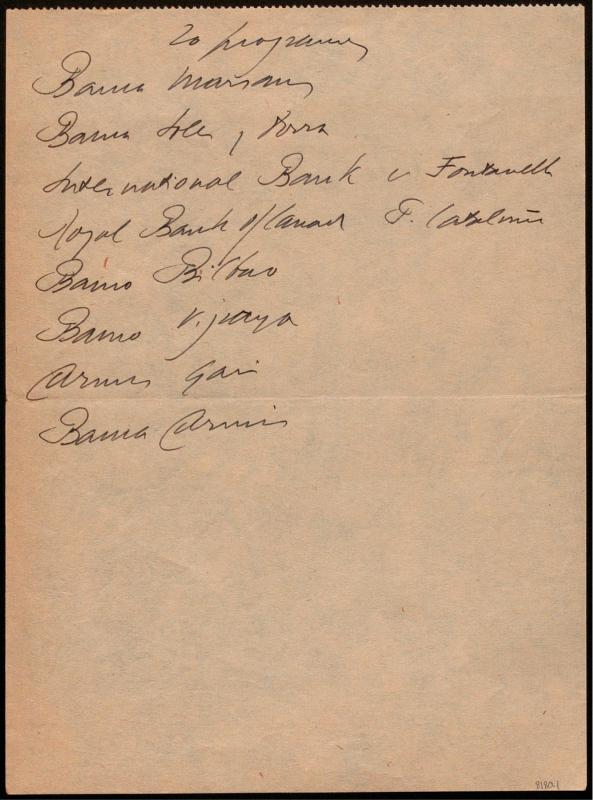 20 programes
Banca Marsans
Banca Soler y Torra
International Bank c Fontanella
Royal Bank of Canad P. Cataluña
Banco Bilbao
Banco Vizcaya
Arnus Gari
Banca Arnus
8180.1